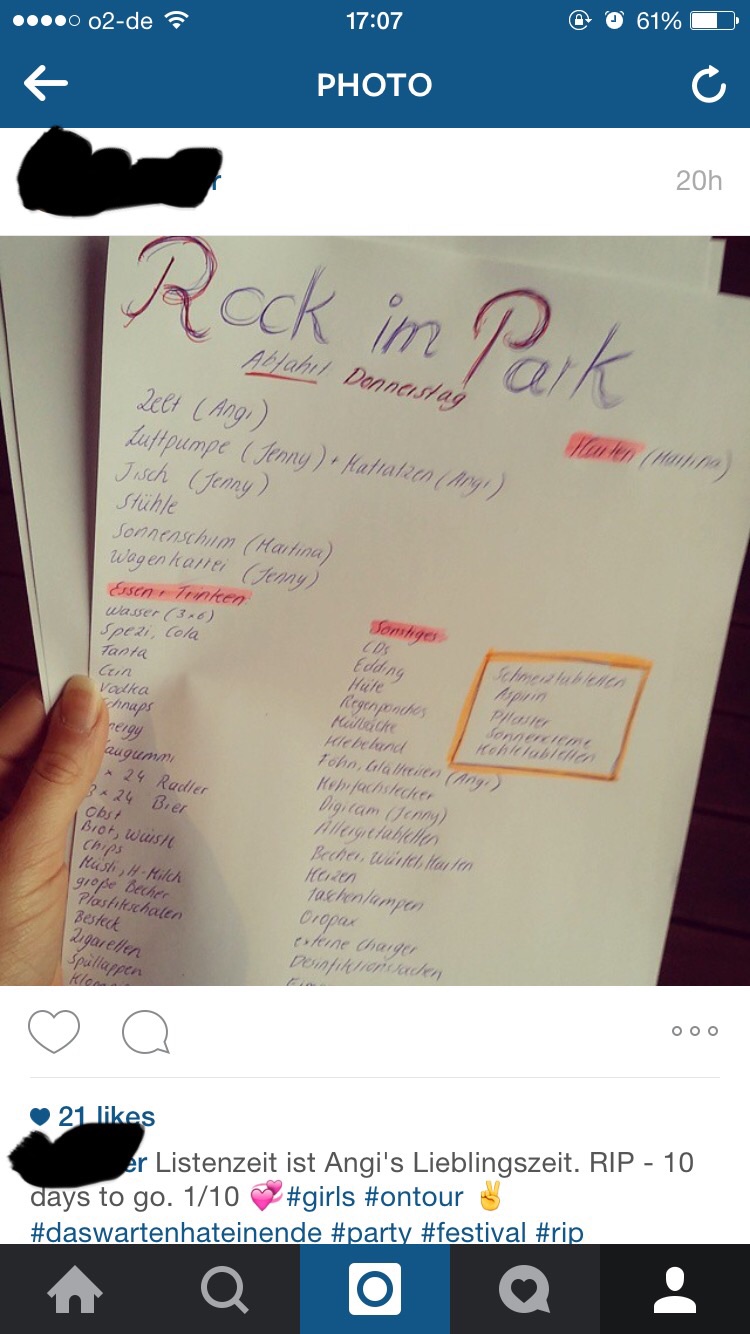 o2-de 17:07 61%
PHOTO
r
20h
Rock im Park
Abfahrt Donnerstag
Zelt (Angi)
Karten (Martina)
Luftpumpe (Jenny) + Matratzen (Angi)
Tisch (Jenny)
Stühle
Sonnenschirm (Martina)
Wagenkartei (Jenny)
Essen + Trinken
Wasser (3x6)
Spezi, Cola
Fanta
Gin
Vodka
Schnaps
nergy
augummi
x 24 Radler
3 x 24 Bier
Obst
Brot, Würstl
Chips
Müsli, H-Milch
große Becher
Plastikschalen
Besteck
Zigaretten
Spüllappen
Sonstiges
CDs
Edding
Hüte
Regenponchos
Müllsäcke
Klebeband
Föhn, Glätteisen (Angi)
Mehrfachstecker
Digicam (Jenny)
Allergietabletten
Becher, Würfel, Karten
Kerzen
Taschenlampen
Oropax
externe Charger
Desinfiktionssachen
Schmerztabletten
Aspirin
Pflaster
Sonnencreme
Kohletabletten
21 likes
er Listenzeit ist Angi's Lieblingszeit. RIP - 10
days to go. 1/10 💞 #girls #ontour ✌
#daswartenhateinende #party #festival #rip